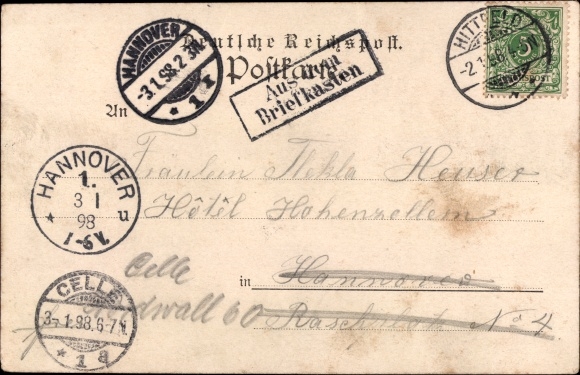 Deutsche Reichspost.
Postkarte
HANNOVER
-3.1.98.2
* 1 r
Aus dem
Briefkasten
HITTFELD
-2.1.98
5
REICHSPOST
An
Fräulein Thekla Heuser
Hôtêl Hohenzollern
HANNOVER
1.
3 1
98
* u
1-6 V.
in Hannover
Celle
wall 60
Raschplatz No 4
CELLE
3-.1.98.6-7N.
* 1 a